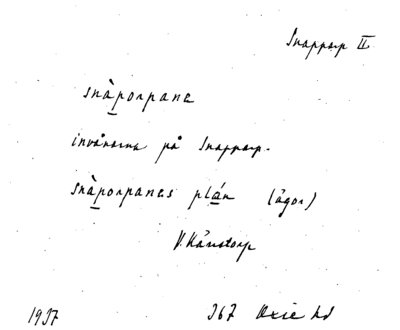 Snapparp II
snàporpana
invånarna på Snapparp.
snàporpanas plán (ägor)
V. Kärrstorp
1937 367 Oxie hd